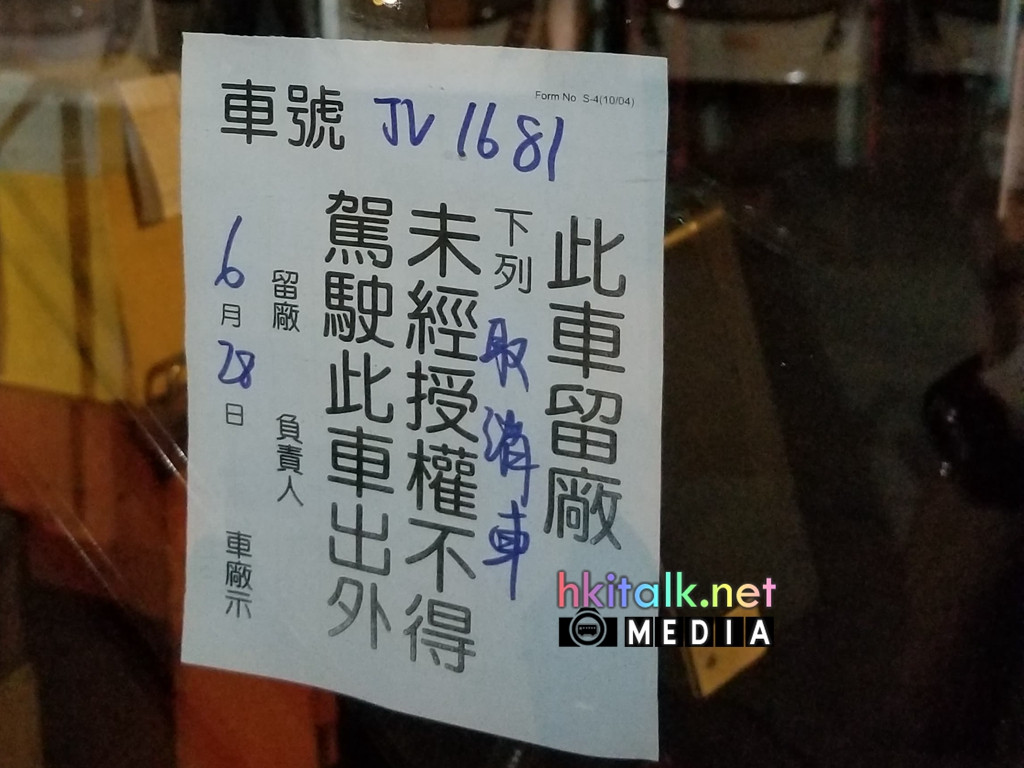 Form No S-4(10/04)
車號 JV 1681
此車留廠
下列 取消車
未經授權不得
駕駛此車出外
留廠 負責人
6月28日 車廠示
hkitalk.net
MEDIA